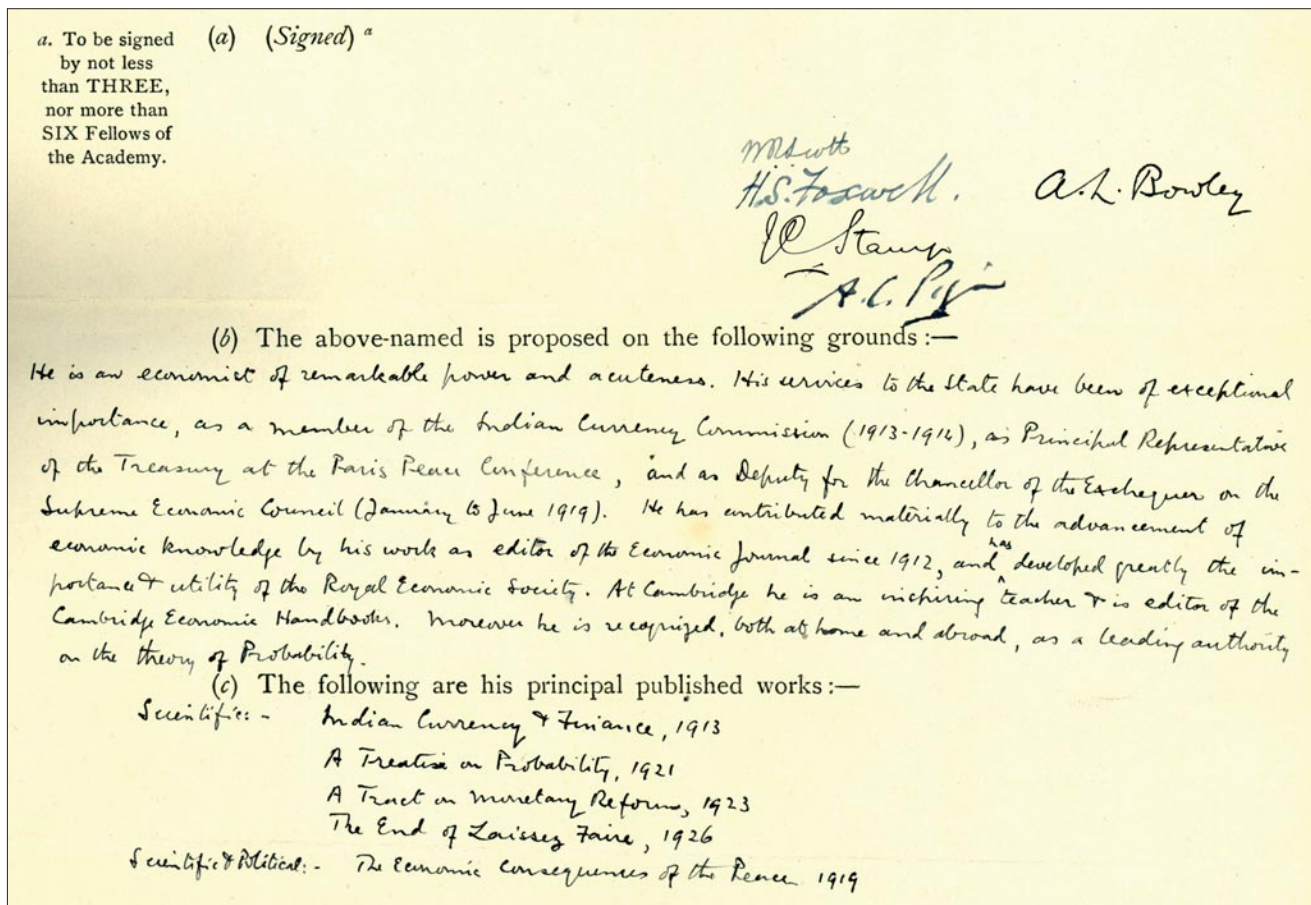 a. To be signed
by not less
than THREE,
nor more than
SIX Fellows of
the Academy.
(a) (Signed) a
W R Scott
H.S. Foxwell.
A. L. Bowley
J C Stamp
A. C. Pigou
(b) The above-named is proposed on the following grounds :—
He is an economist of remarkable power and acuteness. His services to the State have been of exceptional
importance, as a member of the Indian Currency Commission (1913-1914), as Principal Representative
of the Treasury at the Paris Peace Conference, and as Deputy for the Chancellor of the Exchequer on the
Supreme Economic Council (January to June 1919). He has contributed materially to the advancement of
economic knowledge by his work as editor of the Economic Journal since 1912, and has developed greatly the im-
portance & utility of the Royal Economic Society. At Cambridge he is an inspiring teacher & is editor of the
Cambridge Economic Handbooks. Moreover he is recognized, both at home and abroad, as a leading authority
on the theory of Probability.
(c) The following are his principal published works :—
Scientific :- Indian Currency & Finance, 1913
A Treatise on Probability, 1921
A Tract on Monetary Reform, 1923
The End of Laissez Faire, 1926
Scientific & Political :- The Economic Consequences of the Peace 1919